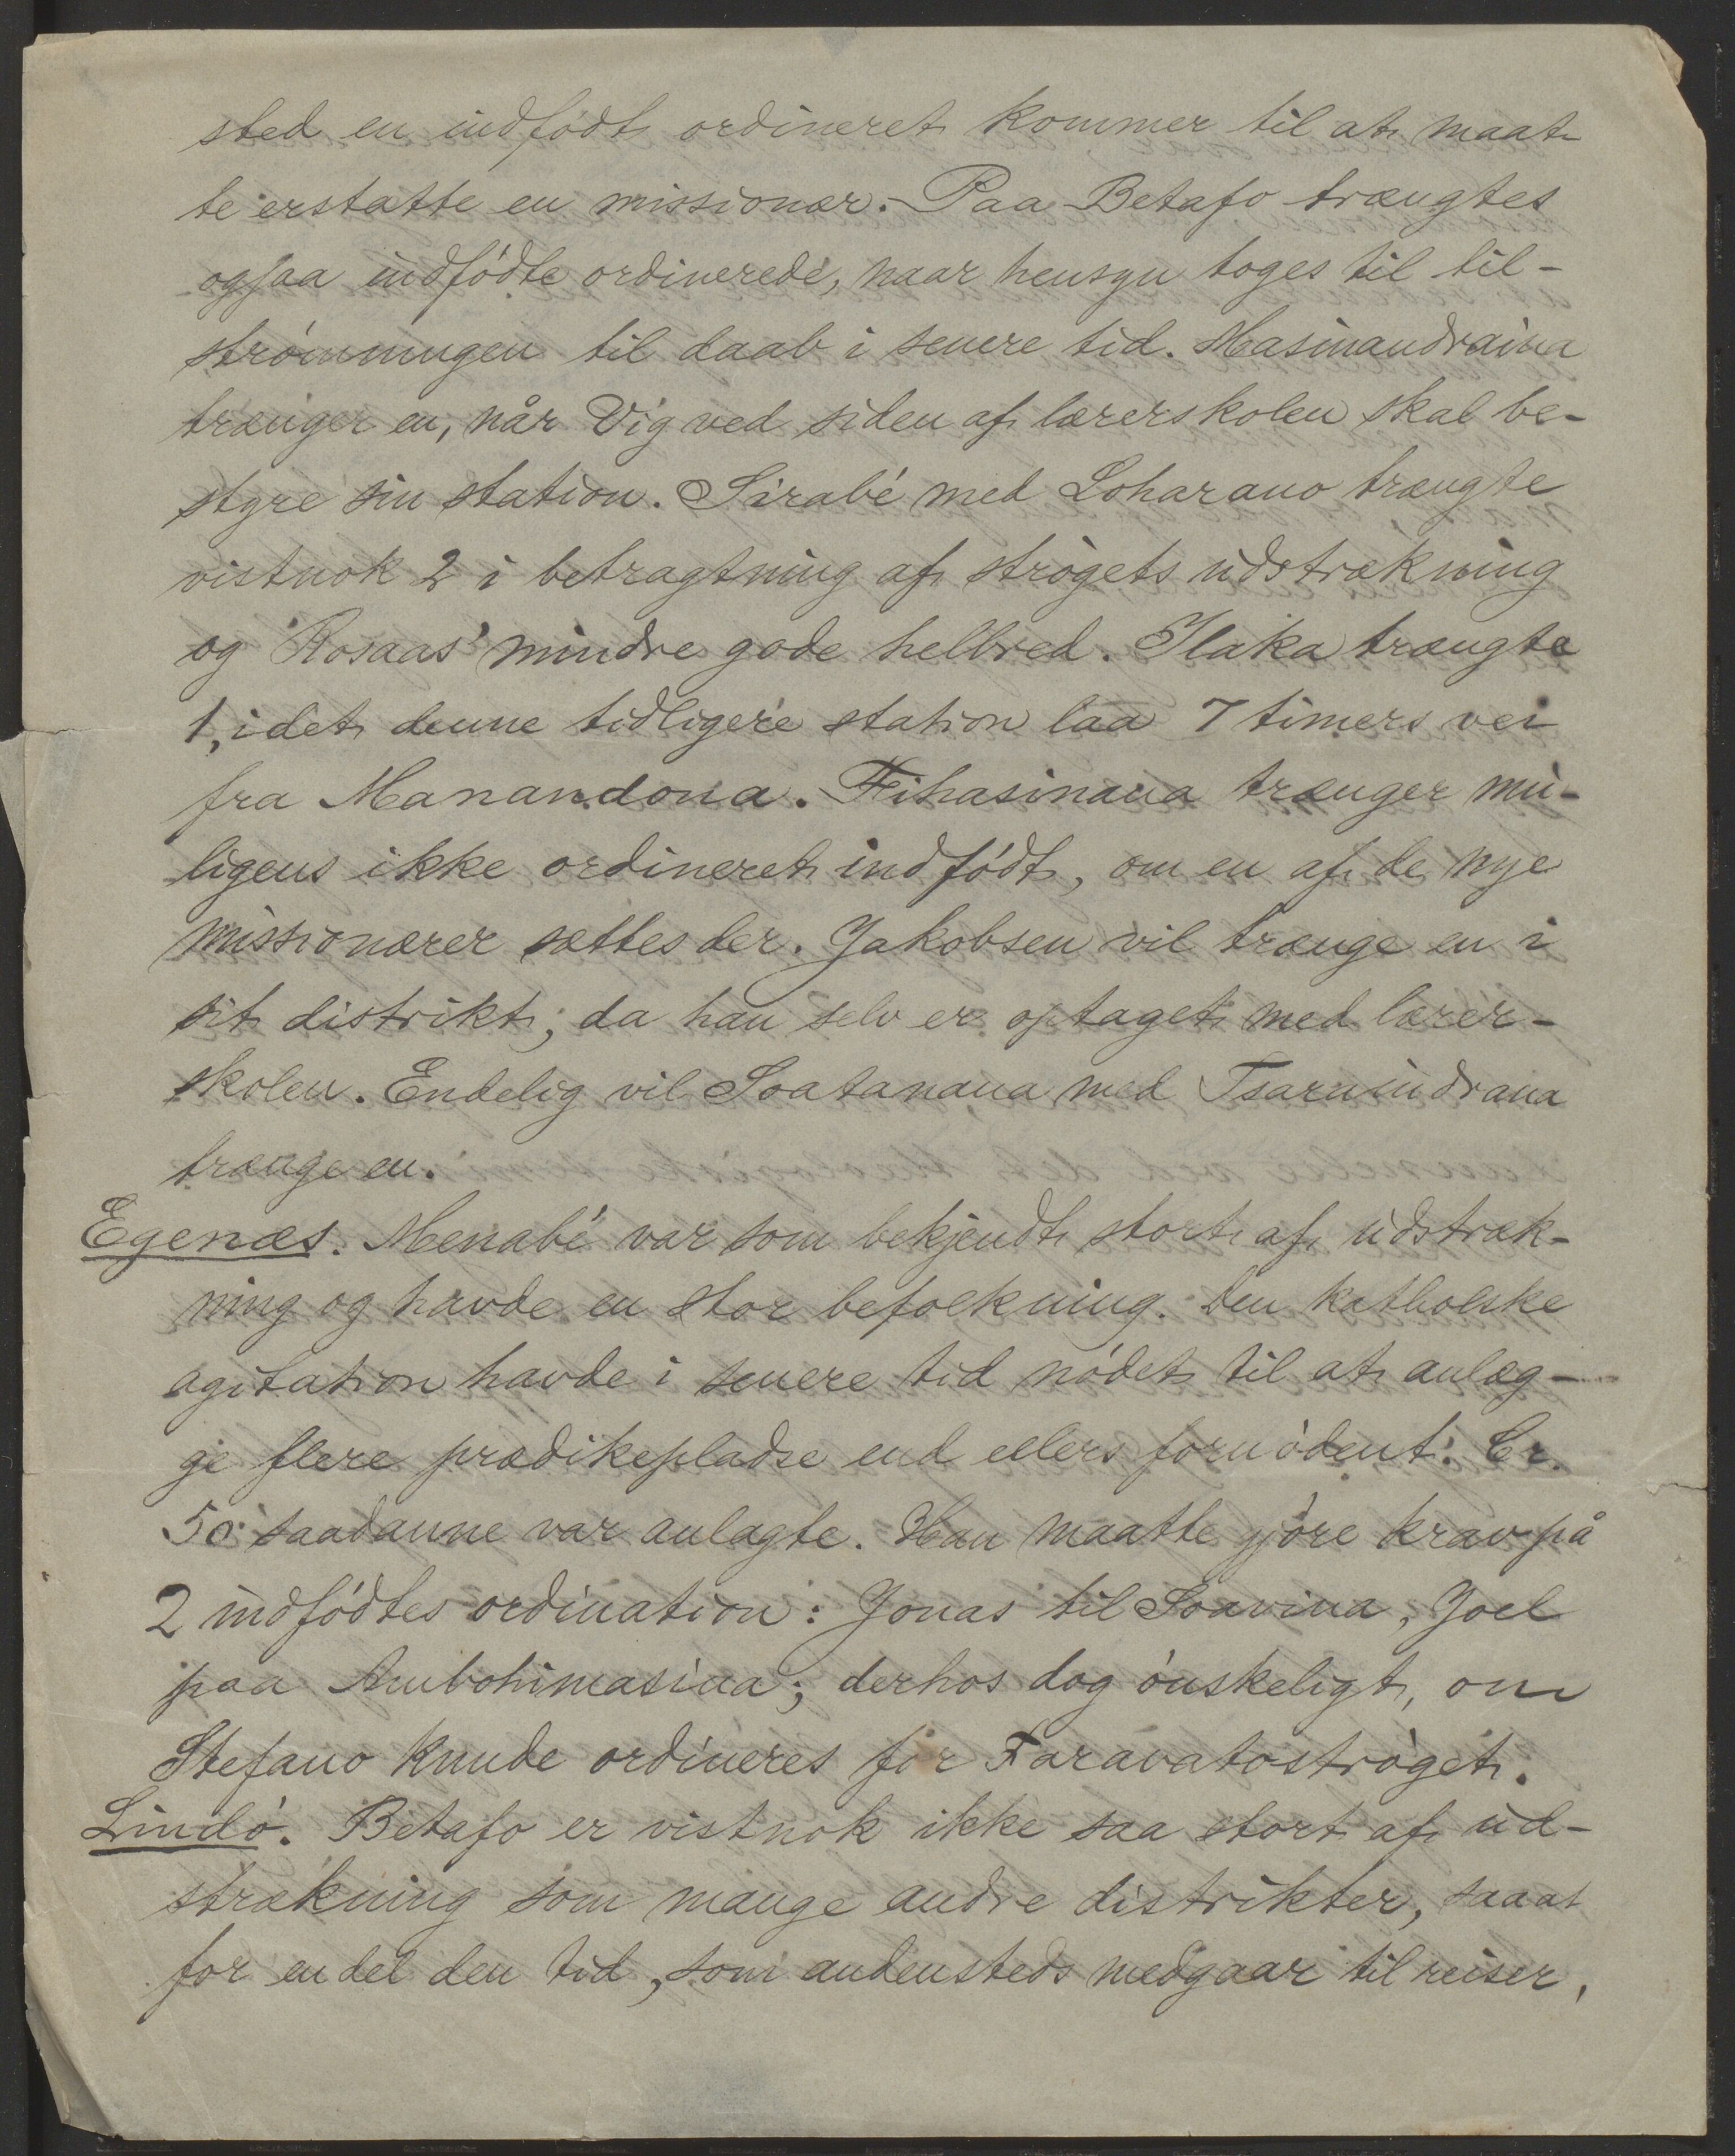 sted en indfødt ordineret kommer til at maat-
te erstatte en missionær. Paa Betafo trængtes
ogsaa indfødte ordinerede, naar hensyn toges til til-
strømningen til daab i senere tid. Masinandraina
trænger en, når Vig ved siden af lærerskolen skal be-
styre sin station. Sirabé med Loharano trængte
vistnok 2 i betragtning af strøgets udstrækning
og Rosaas' mindre gode helbred. Ilaka trængte
1, idet denne tidligere station laa 7 timers vei
fra Manandona. Fihasinana trænger mu-
ligens ikke ordineret indfødt, om en af de nye
missionærer sættes der. Jakobsen vil trænge en i
sit distrikt; da han selv er optaget med lærer-
skolen. Endelig vil Soatanana med Tsaraindrana
trænge en.
Egenæs. Menabé var som bekjendt stort af udstræk-
ning og havde en stor befolkning. Den katholske
agitation havde i senere tid nødet til at anlæg-
ge flere prædikepladse end ellers fornødent. Cr.
50 saadanne var anlagte. Han maatte gjøre krav på
2 indfødtes ordination: Jonas til Soavina, Joel
paa Ambohimasina; derhos dog ønskeligt, om
Stefano kunde ordineres for Faravatostrøget.
Lindø. Betafo er vistnok ikke saa stort af ud-
strækning som mange andre distrikter, saaat
for en del den tid, som andensteds medgaar til reiser,